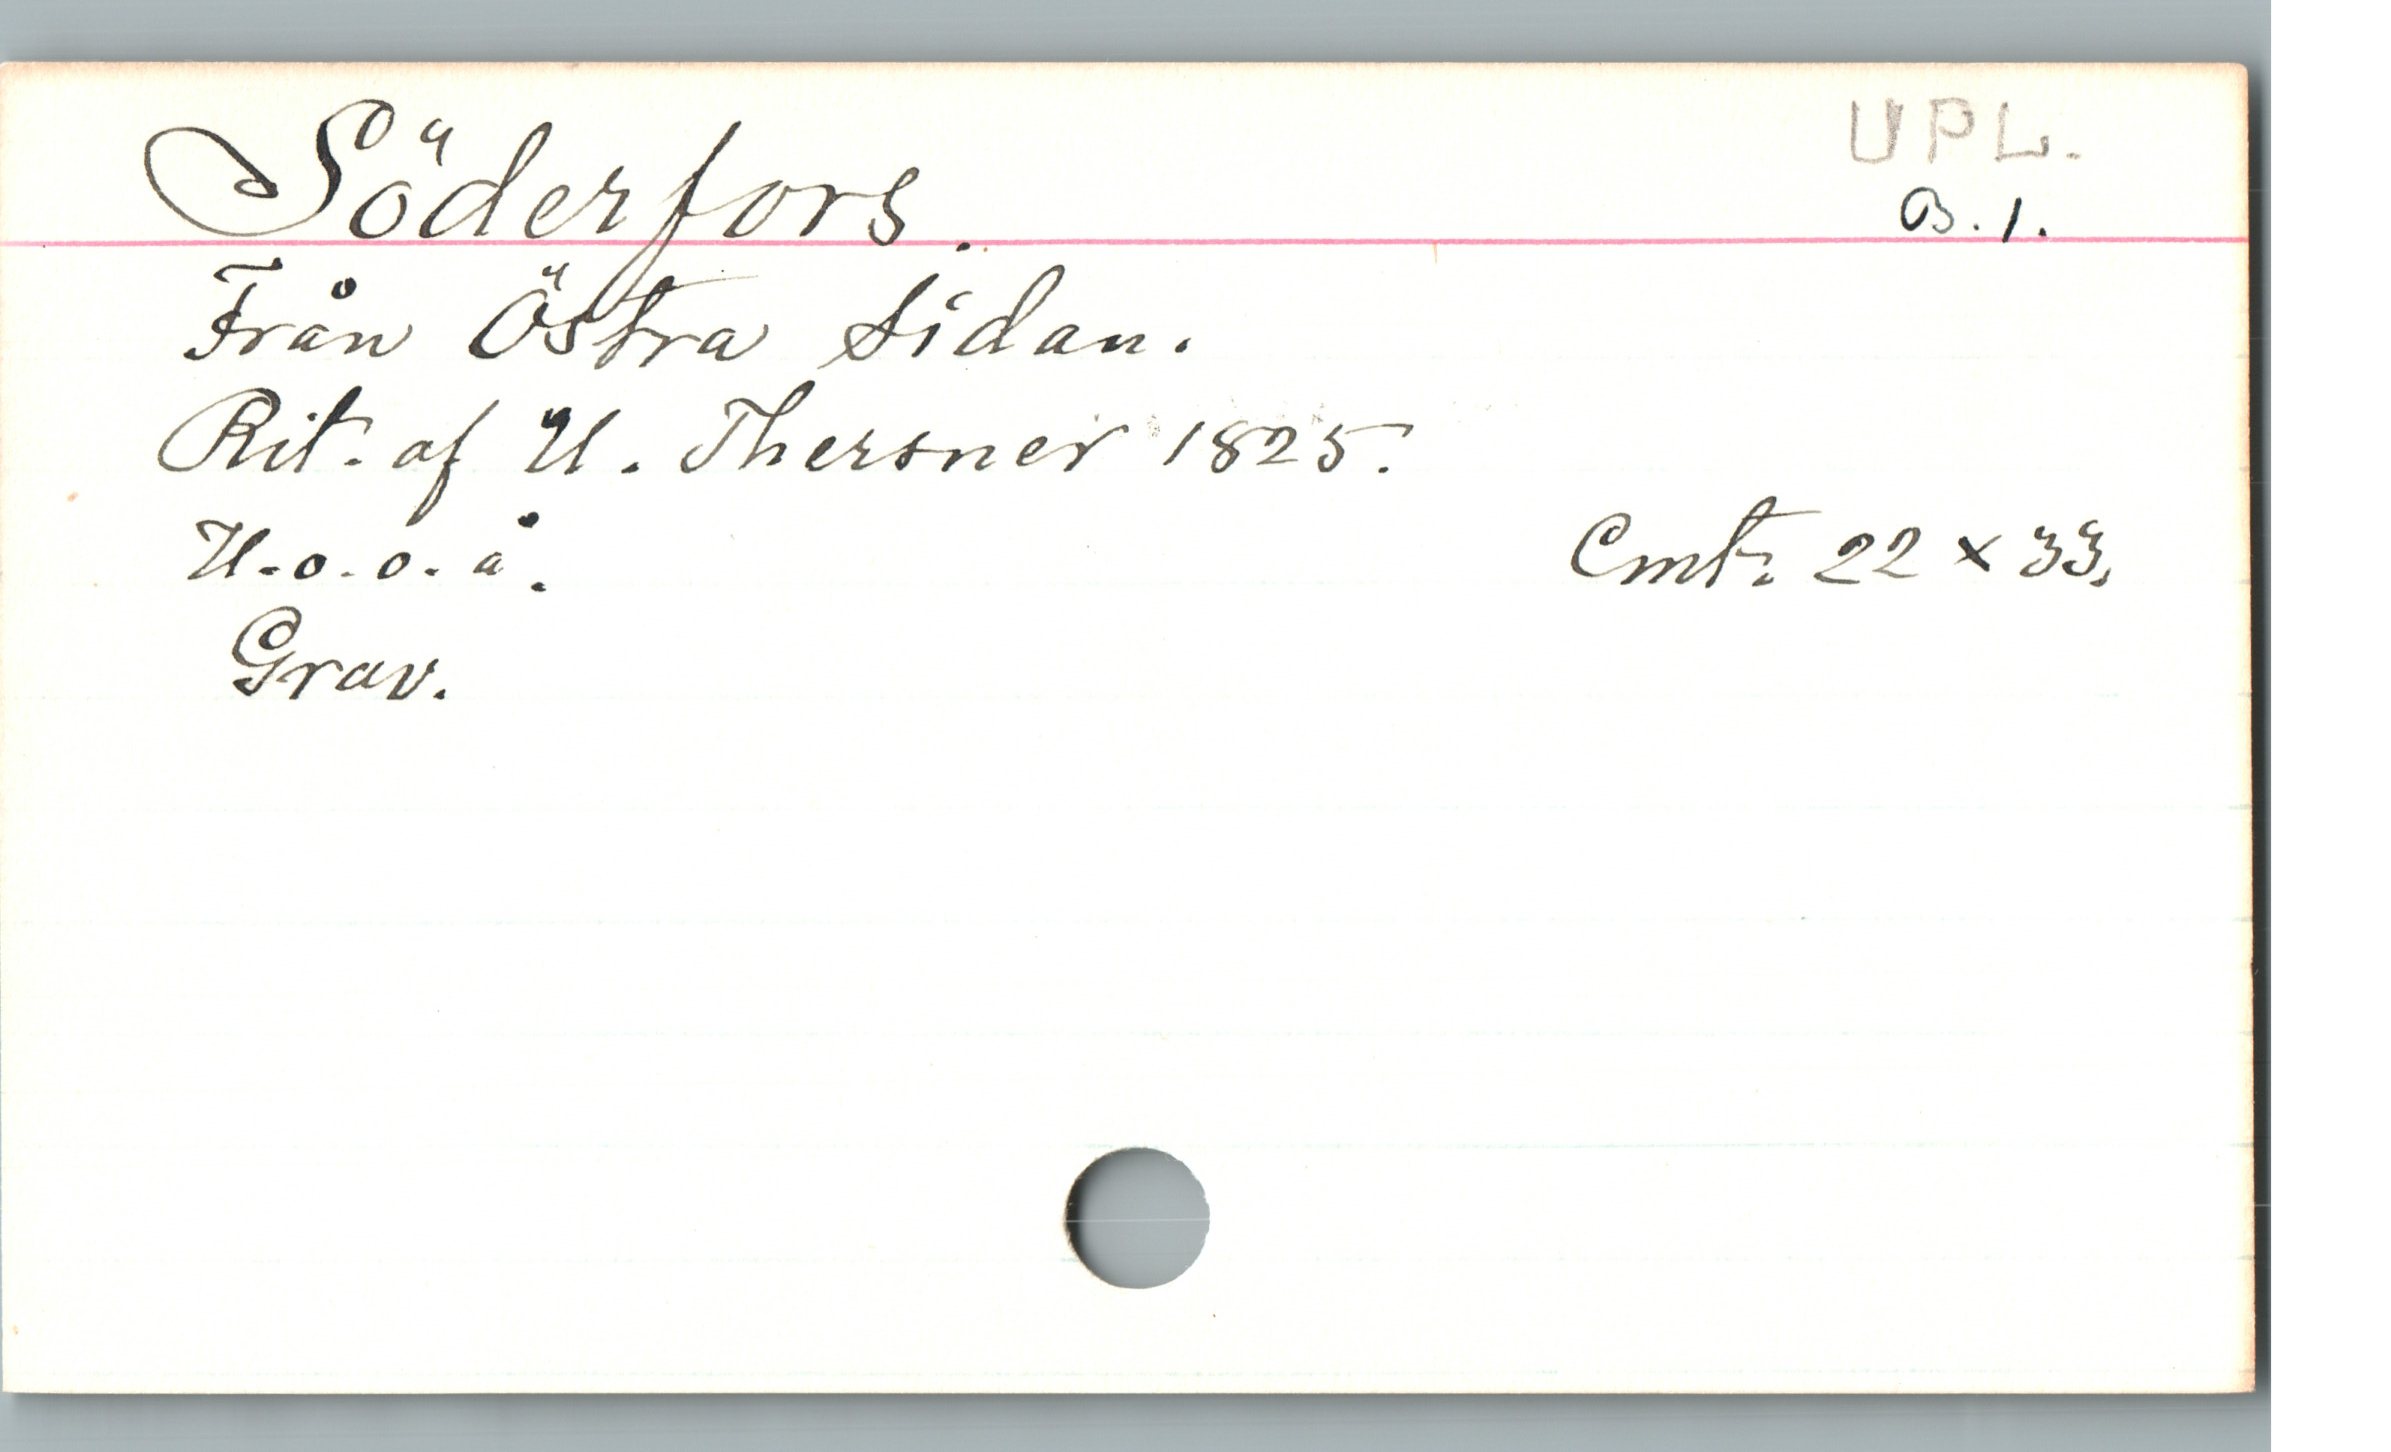 Söderfors.
UPL.
B. 1.
Från Östra Sidan.
Rit. af U. Thersner 1825.
U. o. o. å.
Cmt. 22 x 33.
Grav.